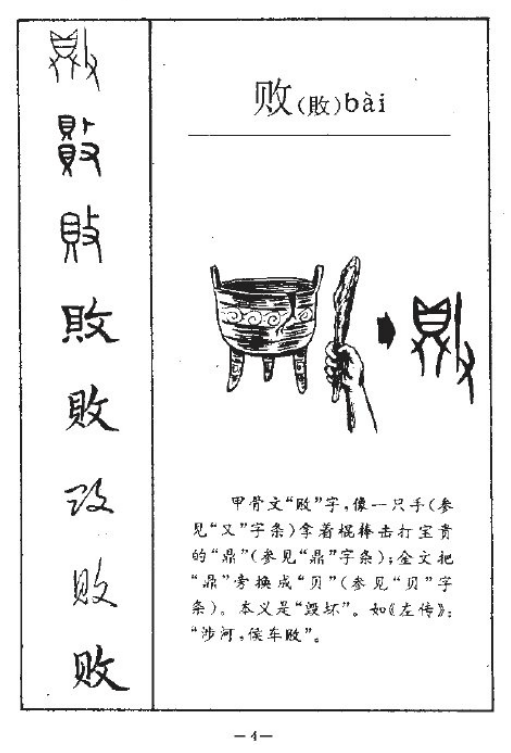 败(敗)bài
甲骨文“败”字,像一只手(参
见“又”字条)拿着棍棒击打宝贵
的“鼎”(参见“鼎”字条);金文把
“鼎”旁换成“贝”(参见“贝”字
条)。本义是“毁坏”。如《左传》:
“涉河,侯车败”。
敗
敗
败
败
—4—